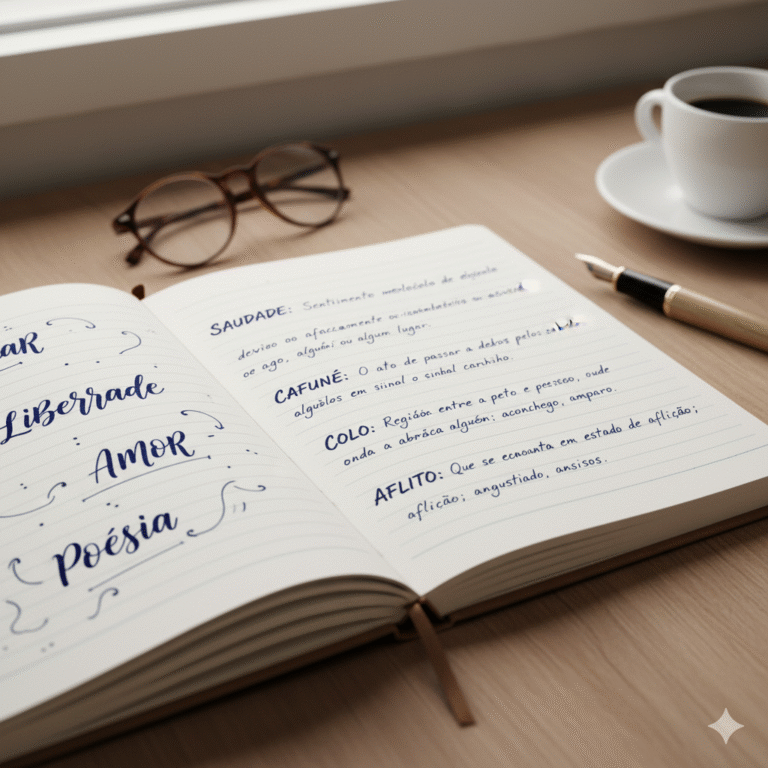 aR
LiBerrade
AMOR
Poésia
SAUDADE: Sentimento
devieo ao afacamente ou
oe ago, alguéi ou algum lugar.
CAFUNÉ: O ato de passar a dedos
alguблos em siinal o sinbal carinho.
COLO: Regiãoa entre a peto e pescoo, oude
onda a abráca alguén; aconchego, amparo.
AFLITO: Que se ecnoanta em estado de aflição;
aflicão; angustiado, ansisos.